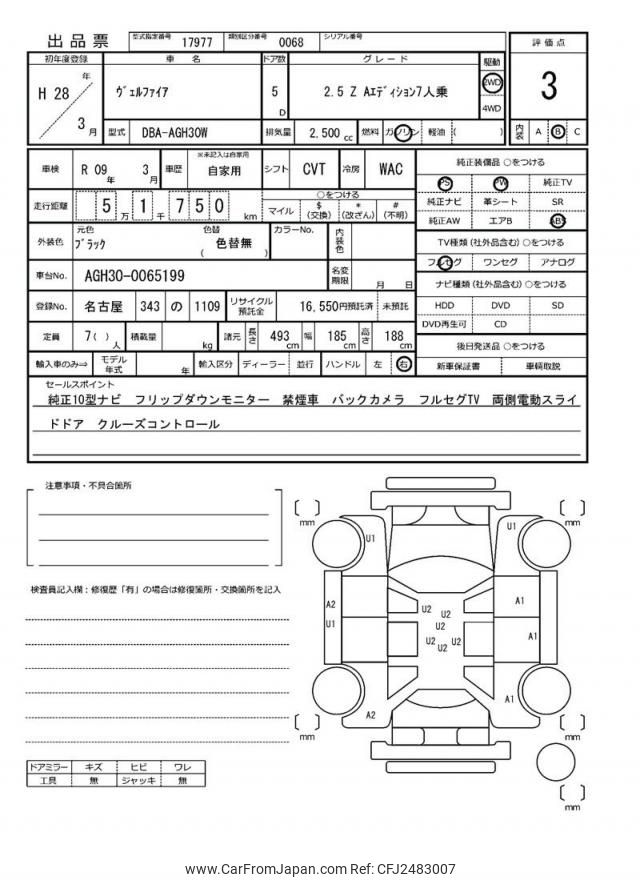 出品票 型式指定番号 17977 類別区分番号 0068 シリアル番号
評価点
3
内装 A B C
初年度登録 車名 ドア数 グレード 駆動
H 28 年 3月 ヴェルファイア 5 D 2.5 Z Aエディション7人乗 2WD
4WD
型式 DBA-AGH30W 排気量 2,500 cc 燃料 ガソリン 軽油 ( )
車検 R 09 年 3 月 車歴 ※未記入は自家用 自家用 シフト CVT 冷房 WAC
走行距離 5 万 1 千 7 5 0 km
○をつける
マイル $(交換) *(改ざん) #(不明)
外装色 元色 ブラック 色替 ( 色替無 ) カラーNo. 内装色
車台No. AGH30-0065199 名変期限 月 日
登録No. 名古屋 343 の 1109 リサイクル預託金 16,550円預託済 未預託
定員 7( ) 人 積載量 kg 諸元 長さ 493 cm 幅 185 cm 高さ 188 cm
輸入車のみ⇒ モデル年式 年 輸入区分 ディーラー 並行 ハンドル 左 右
純正装備品 ○をつける
PS PW 純正TV
純正ナビ 革シート SR
純正AW エアB ABS
TV種類(社外品含む)○をつける
フルセグ ワンセグ アナログ
ナビ種類(社外品含む)○をつける
HDD DVD SD
DVD再生可 CD
後日発送品 ○をつける
新車保証書 車輌取説
セールスポイント
純正10型ナビ フリップダウンモニター 禁煙車 バックカメラ フルセグTV 両側電動スライ
ドドア クルーズコントロール
注意事項・不具合箇所
検査員記入欄:修復歴「有」の場合は修復箇所・交換箇所を記入
ドアミラー キズ ヒビ ワレ
工具 無 ジャッキ 無
mm
mm
U1
U1
A2
U1
A1
A1
U2
U2
U2
U2
U2
U2
A2
A1
mm
mm
mm
www.CarFromJapan.com Ref: CFJ2483007